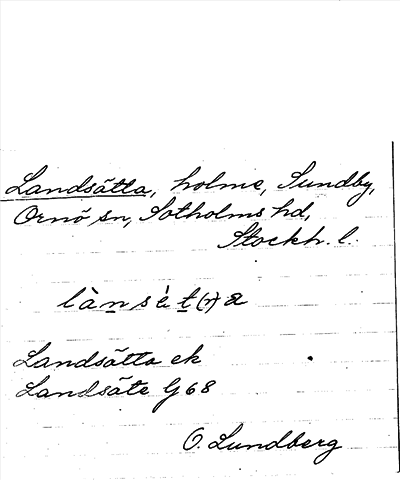 Landsätta, holme, Sundby,
Ornö sn, Sotholms hd,
Stockh. l.
lànsèt(r)a
Landsätta ek
Landsäte G 68
O. Lundberg